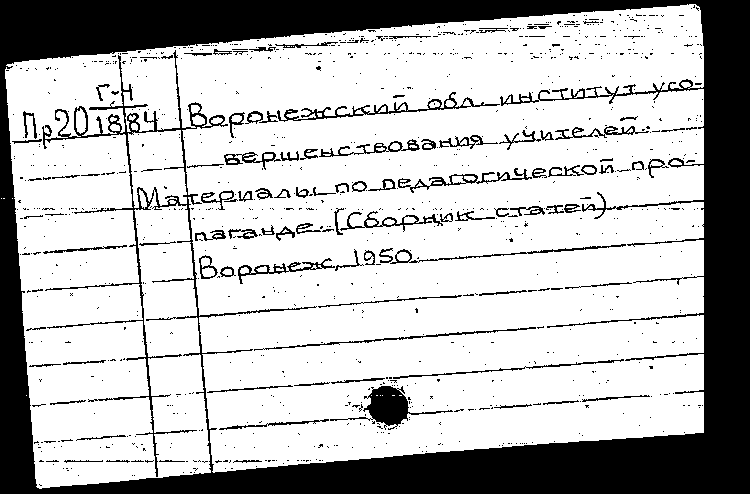 Г-Н
Пр20 1884
Воронежский обл. институт усо-
вершенствования учителей.
Материалы по педагогической про-
паганде. (Сборник статей)
Воронеж, 1950.